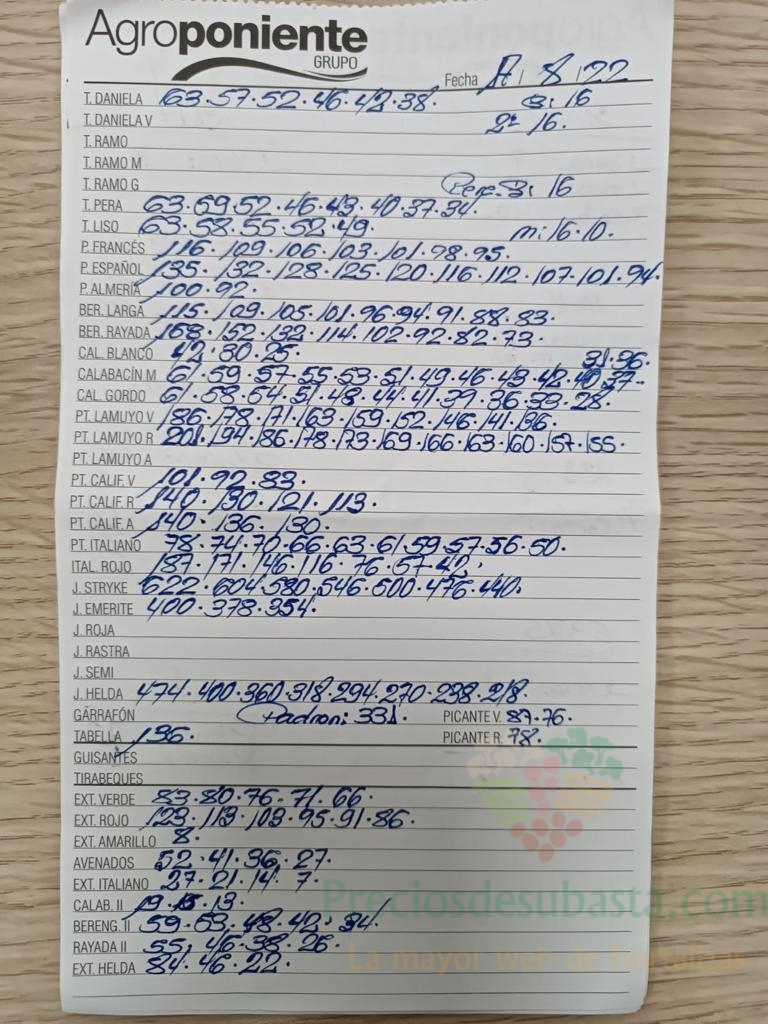 Agroponiente
GRUPO
Fecha 17/8/22
T. DANIELA 63.57.52.46.42.38. 3: 16
T. DANIELA V 2ª 16.
T. RAMO
T. RAMO M
T. RAMO G Pere. 3: 16
T. PERA 63.59.52.46.43.40.37.34.
T. LISO 63.58.55.52.49. m: 16.10.
P. FRANCÉS 116.109.106.103.101.98.95.
P. ESPAÑOL 135.132.128.125.120.116.112.107.101.94.
P. ALMERÍA 100.92.
BER. LARGA 115.109.105.101.96.94.91.88.83.
BER. RAYADA 168.152.132.114.102.92.82.73.
CAL. BLANCO 42.30.25. 31.26.
CALABACÍN M 61.59.57.55.53.51.49.46.43.42.40.37.
CAL. GORDO 61.58.54.51.48.44.41.39.36.33.28.
PT. LAMUYO V 186.178.171.163.159.152.146.141.136.
PT. LAMUYO R 201.194.186.178.173.169.166.163.160.157.155.
PT. LAMUYO A
PT. CALIF. V 101.92.83.
PT. CALIF. R 140.130.121.113.
PT. CALIF. A 140.136.130.
PT. ITALIANO 78.74.70.66.63.61.59.57.56.50.
ITAL. ROJO 187.171.146.116.76.57.42.
J. STRYKE 622.604.580.546.500.476.440.
J. EMERITE 400.378.354.
J. ROJA
J. RASTRA
J. SEMI
J. HELDA 474.400.360.318.294.270.238.218.
GARRAFÓN Padron: 331. PICANTE V. 87.76.
TABELLA 136. PICANTE R. 78.
GUISANTES
TIRABEQUES
EXT. VERDE 83.80.76.71.66.
EXT. ROJO 123.113.103.95.91.86.
EXT. AMARILLO 8.
AVENADOS 52.41.36.27.
EXT. ITALIANO 27.21.14.7.
CALAB. II 19.15.13.
BERENG. II 59.53.48.42.34.
RAYADA II 55.46.38.26.
EXT. HELDA 84.46.22.
Preciosdesubasta.com
La mayor web de hortalizas